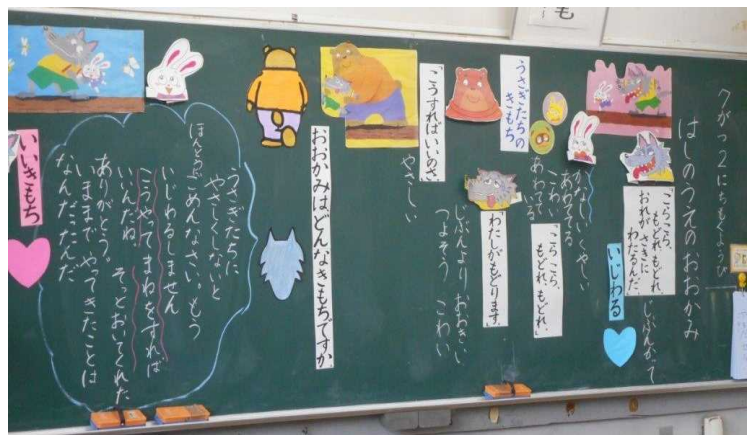 も
7がつ2にちもくようび
はしのうえのおおかみ
こらこら、
もどれ、もどれ。
おれが、さきに
わたるんだ。
じぶんかって
いじわる
うさぎたちの
きもち
かなしい くやしい
あわてる
こわい
あわてる
こらこら、
もどれ、もどれ。
「わたしがもどります。」
じぶんより おおきい
つよそう こわい
「こうすればいいのさ。」
やさしい
おおかみは、どんなきもちですか。
うさぎたちに
やさしくしないと
ほんとうにごめんなさい。もう
いじわるしません
こうやってまねをすれば
いいんだね。
そっとおいてくれた
ありがとう。
いままで やってきたことは
なんだったんだ
いいきもち